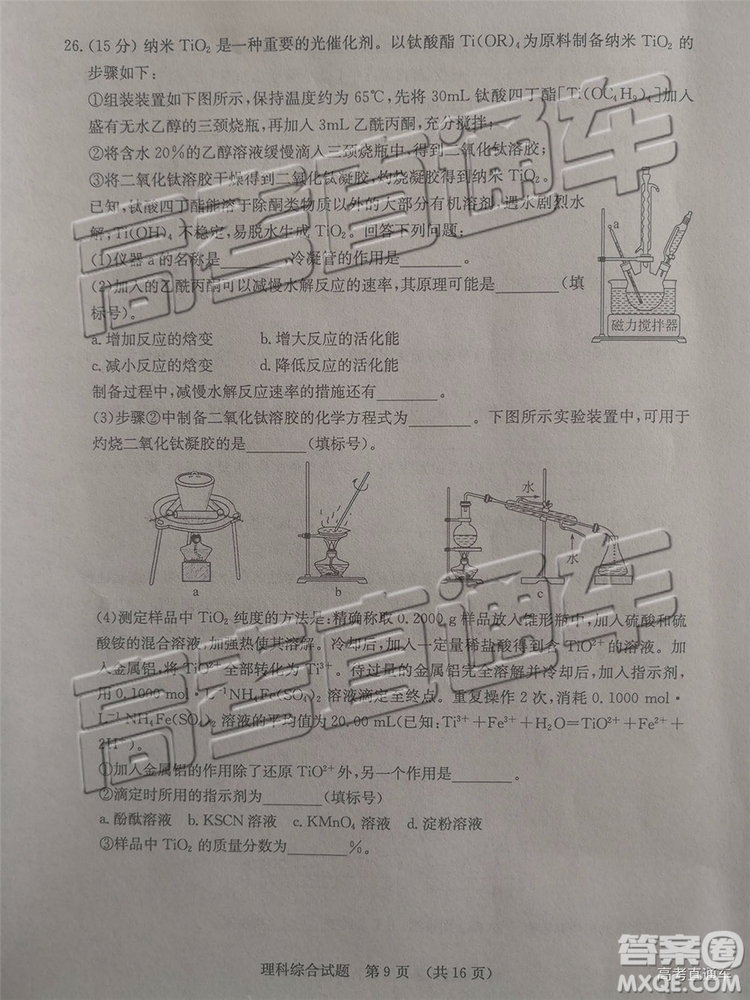 26.(15分)纳米 TiO₂ 是一种重要的光催化剂。以钛酸酯 Ti(OR)₄ 为原料制备纳米 TiO₂ 的
步骤如下:
①组装装置如下图所示,保持温度约为 65℃,先将 30mL 钛酸四丁酯[Ti(OC₄H₉)₄]加入
盛有无水乙醇的三颈烧瓶,再加入 3mL 乙酰丙酮,充分搅拌;
②将含水 20%的乙醇溶液缓慢滴入三颈烧瓶中,得到二氧化钛溶胶;
③将二氧化钛溶胶干燥得到二氧化钛凝胶,灼烧凝胶得到纳米 TiO₂。
已知,钛酸四丁酯能溶于除酮类物质以外的大部分有机溶剂,遇水剧烈水
解;Ti(OH)₄ 不稳定,易脱水生成 TiO₂。回答下列问题:
(1)仪器 a 的名称是______,冷凝管的作用是______。
(2)加入的乙酰丙酮可以减慢水解反应的速率,其原理可能是______(填
标号)。
a
磁力搅拌器
a.增加反应的焓变 b.增大反应的活化能
c.减小反应的焓变 d.降低反应的活化能
制备过程中,减慢水解反应速率的措施还有______。
(3)步骤②中制备二氧化钛溶胶的化学方程式为______。下图所示实验装置中,可用于
灼烧二氧化钛凝胶的是______(填标号)。
水
水
a b c
(4)测定样品中 TiO₂ 纯度的方法是:精确称取 0.2000 g 样品放入锥形瓶中,加入硫酸和硫
酸铵的混合溶液,加强热使其溶解。冷却后,加入一定量稀盐酸得到含 TiO²⁺ 的溶液。加
入金属铝,将 TiO²⁺ 全部转化为 Ti³⁺。待过量的金属铝完全溶解并冷却后,加入指示剂,
用 0.1000 mol·L⁻¹ NH₄Fe(SO₄)₂ 溶液滴定至终点。重复操作 2 次,消耗 0.1000 mol·
L⁻¹ NH₄Fe(SO₄)₂ 溶液的平均值为 20.00 mL(已知:Ti³⁺+Fe³⁺+H₂O=TiO²⁺+Fe²⁺+
2H⁺)。
①加入金属铝的作用除了还原 TiO²⁺ 外,另一个作用是______。
②滴定时所用的指示剂为______(填标号)
a.酚酞溶液 b.KSCN 溶液 c.KMnO₄ 溶液 d.淀粉溶液
③样品中 TiO₂ 的质量分数为______%。
理科综合试题 第 9 页 (共 16 页)
高考直通车
高考直通车
答案圈
MXQE.COM
高考直通车